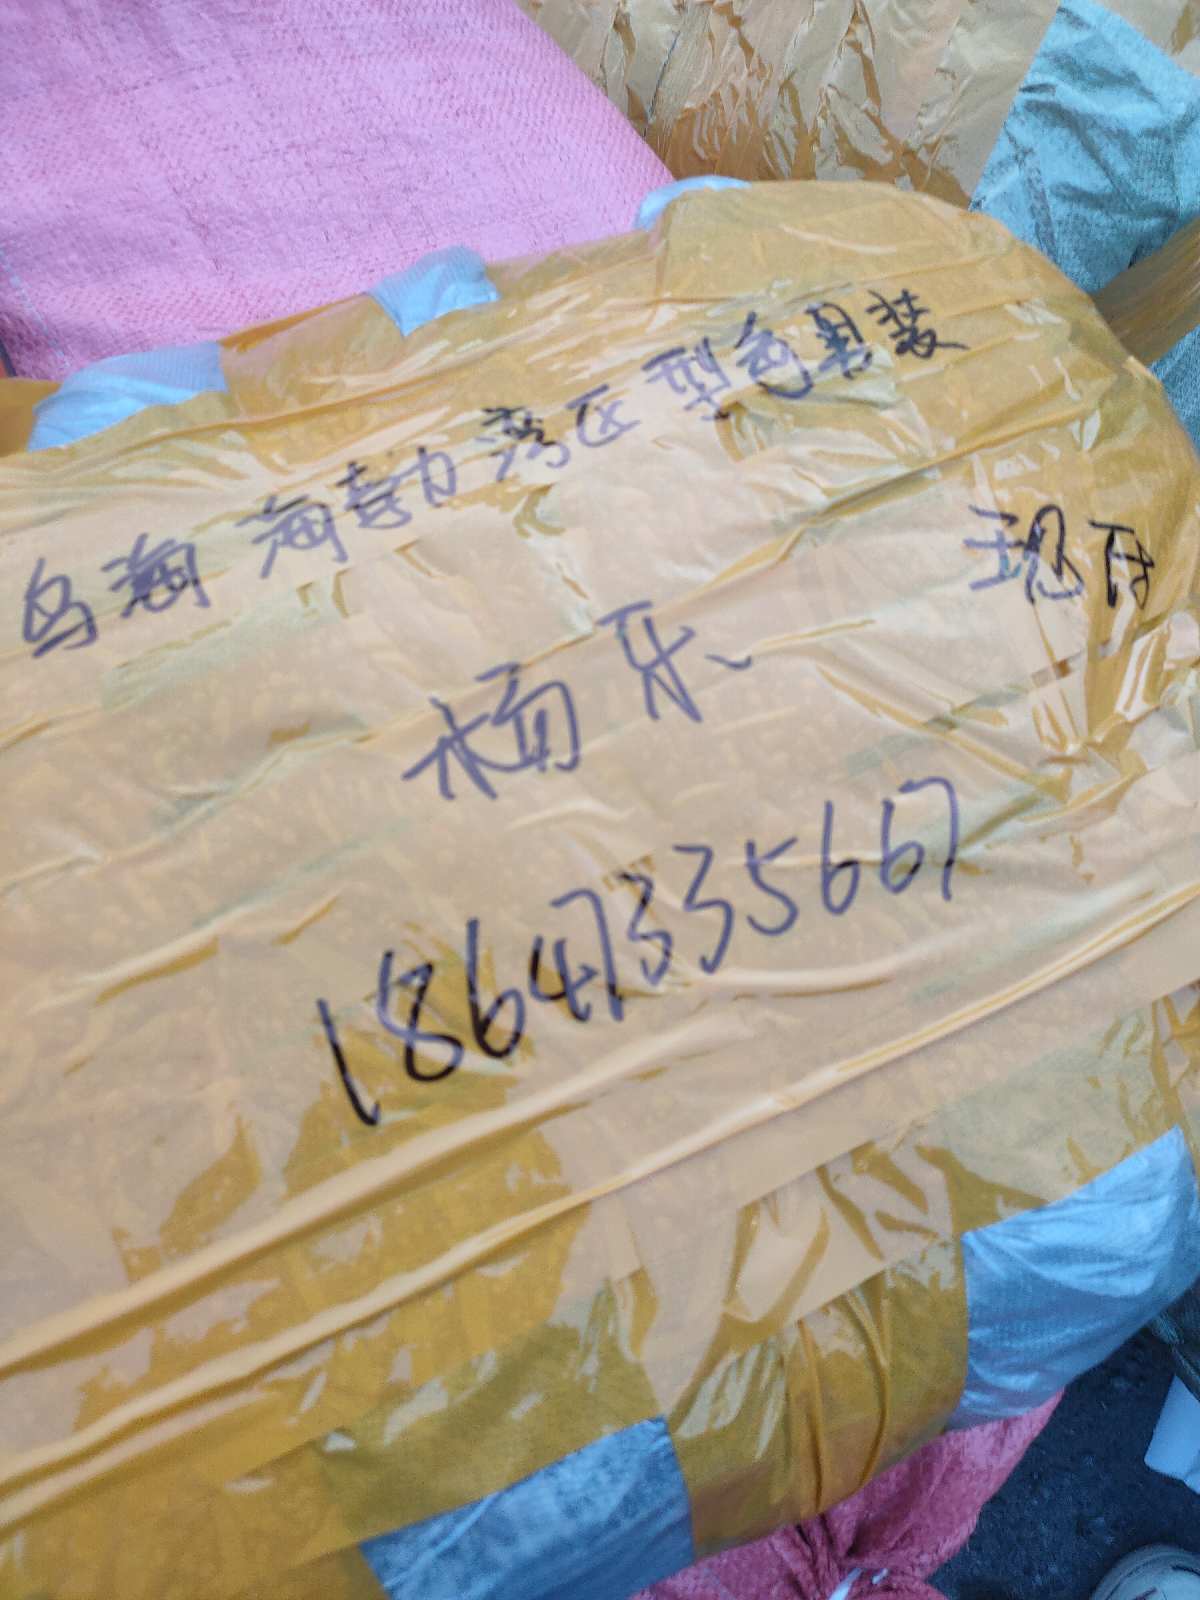 乌海 海勃湾区 型色男装
现
杨乐
18647335667